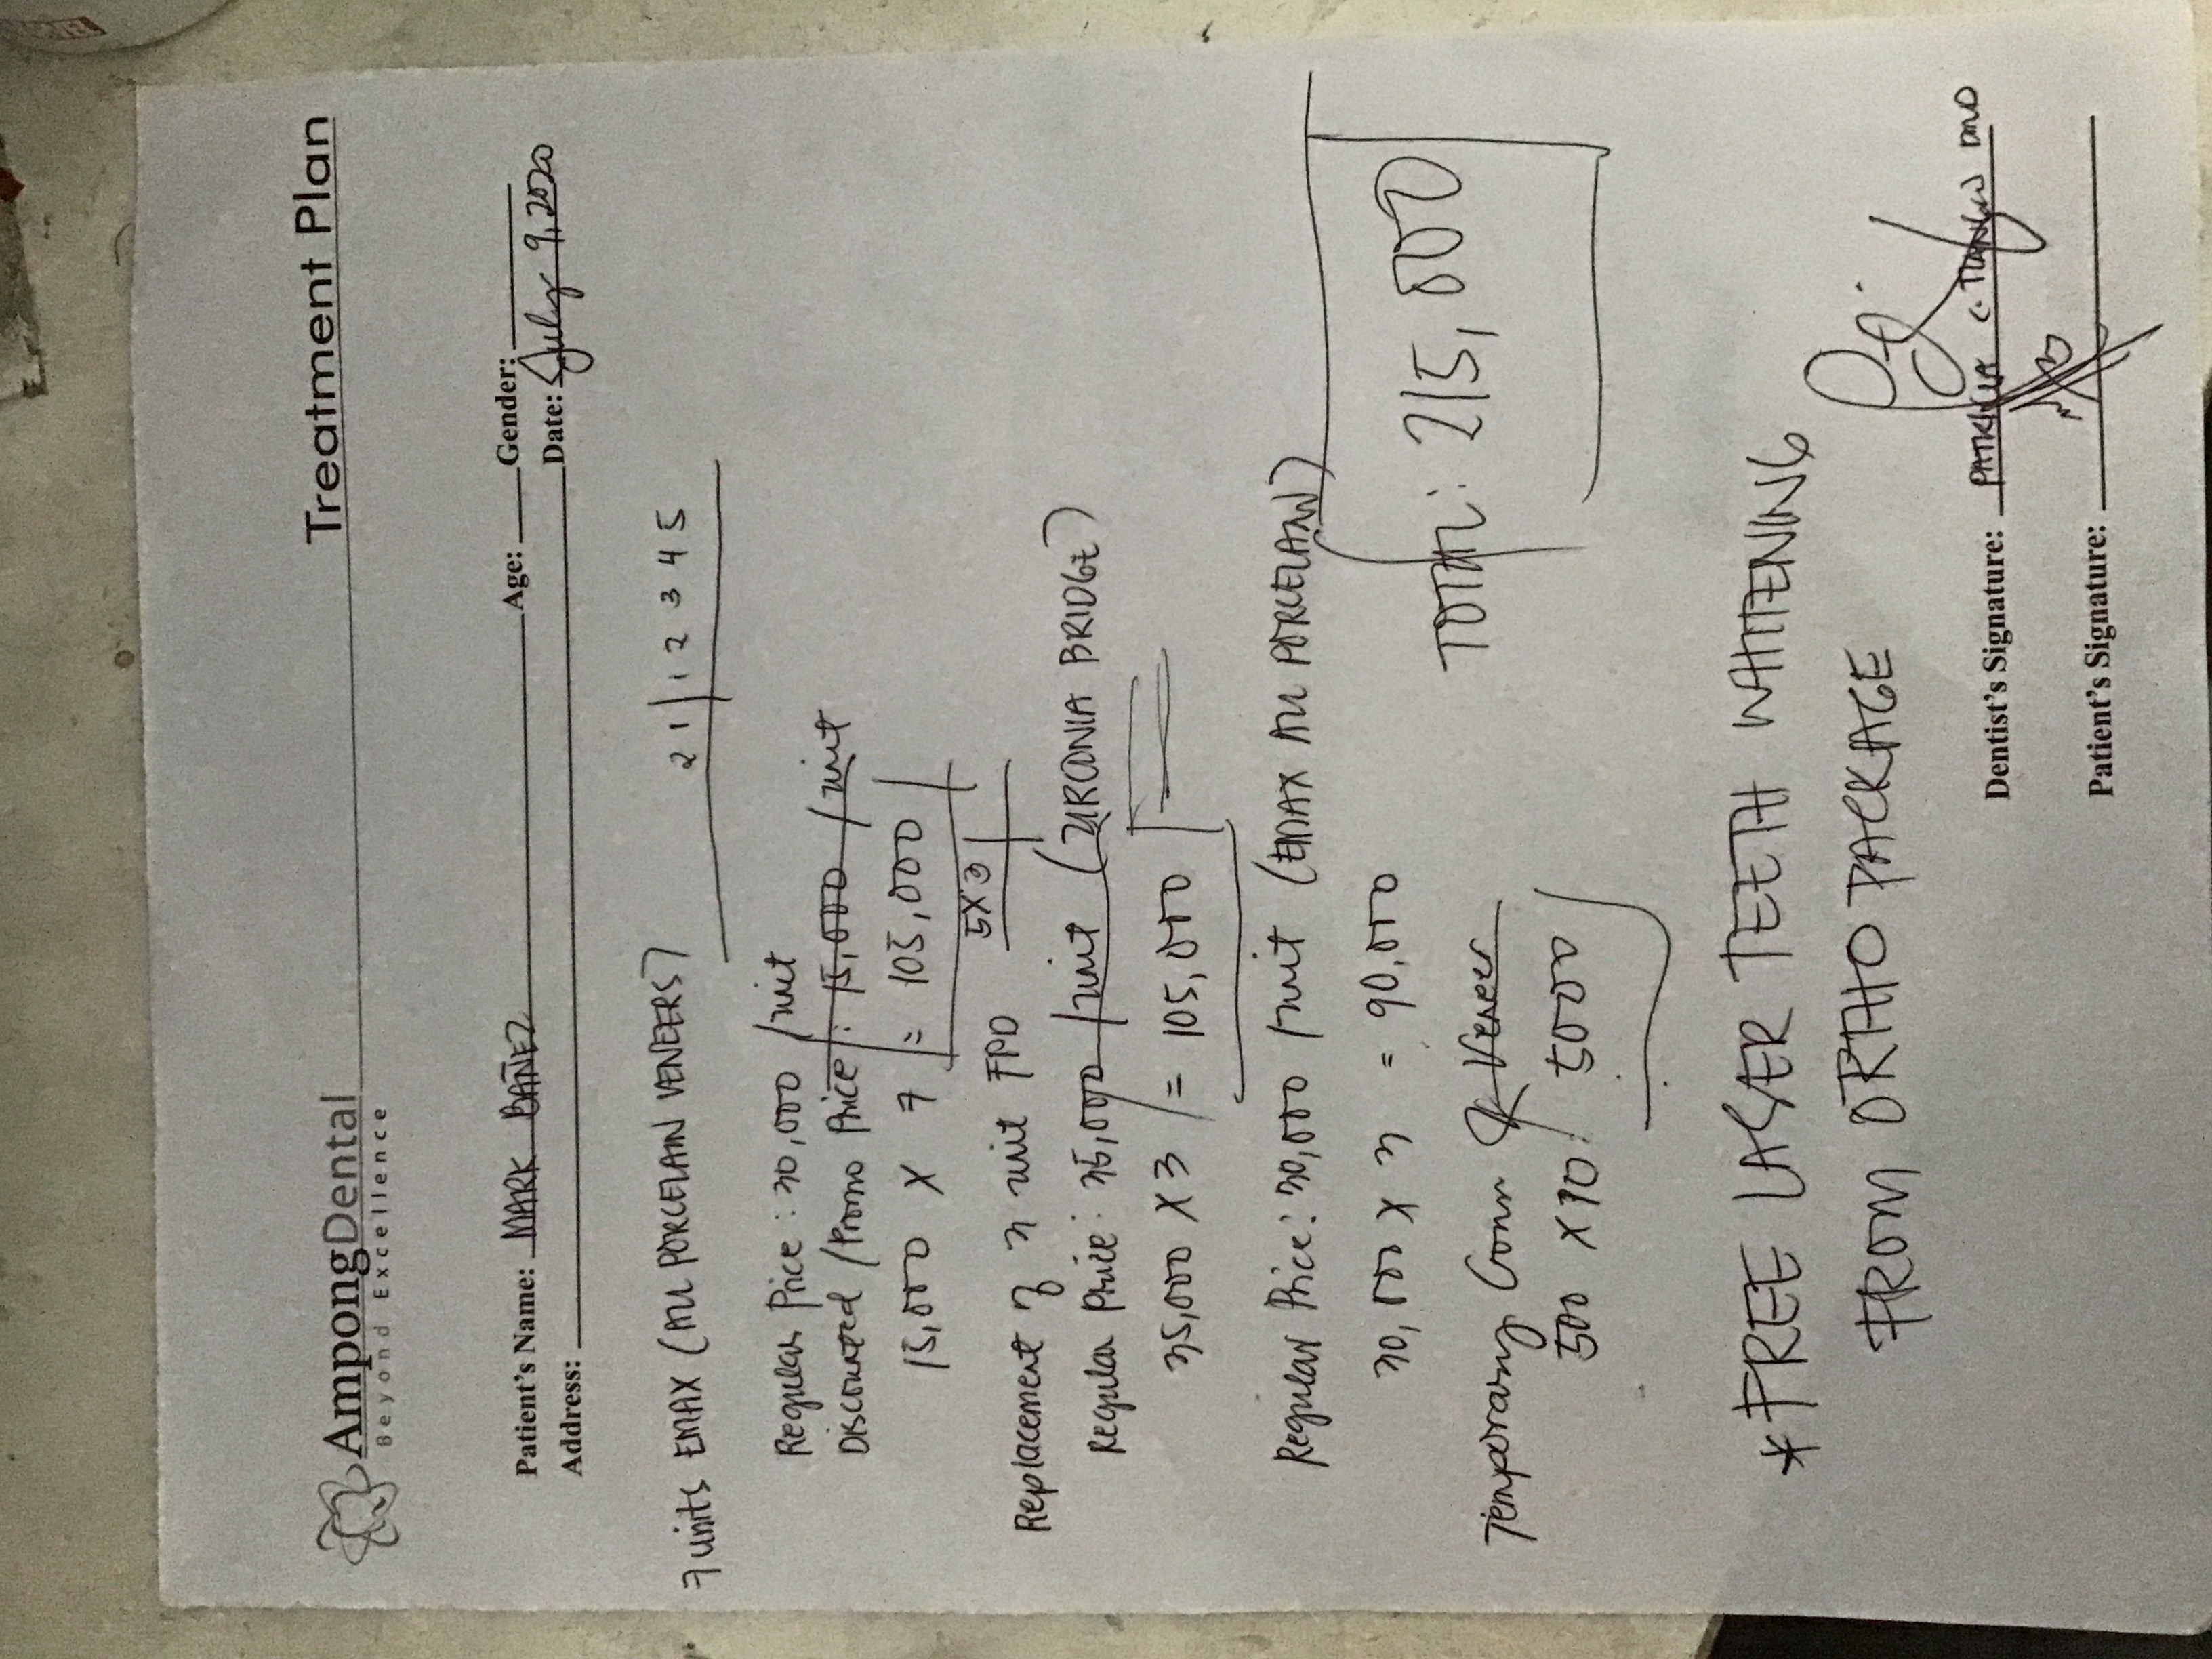 AmpongDental Treatment Plan
Beyond Excellence
Patient's Name: MARK BAÑEZ Age: Gender:
Address: Date: July 9, 2020
7 units EMAX (All PORCELAIN VENEERS) 2 1 | 1 2 3 4 5
Regular Price : 30,000 /unit
Discounted /Promo Price : 15,000 /unit
15,000 x 7 = 105,000
5 x 3
Replacement of 3 unit FPD
Regular Price : 35,000 /unit (ZIRCONIA BRIDGE)
35,000 x 3 = 105,000
Regular Price : 30,000 /unit (EMAX All PORCELAIN)
30,000 x 3 = 90,000
TOTAL : 215,000
Temporary Crown & Veneer
500 x 10 / 5000
* FREE LASER TEETH WHITENING
FROM ORTHO PACKAGE
Dentist's Signature: DMD
Patient's Signature: